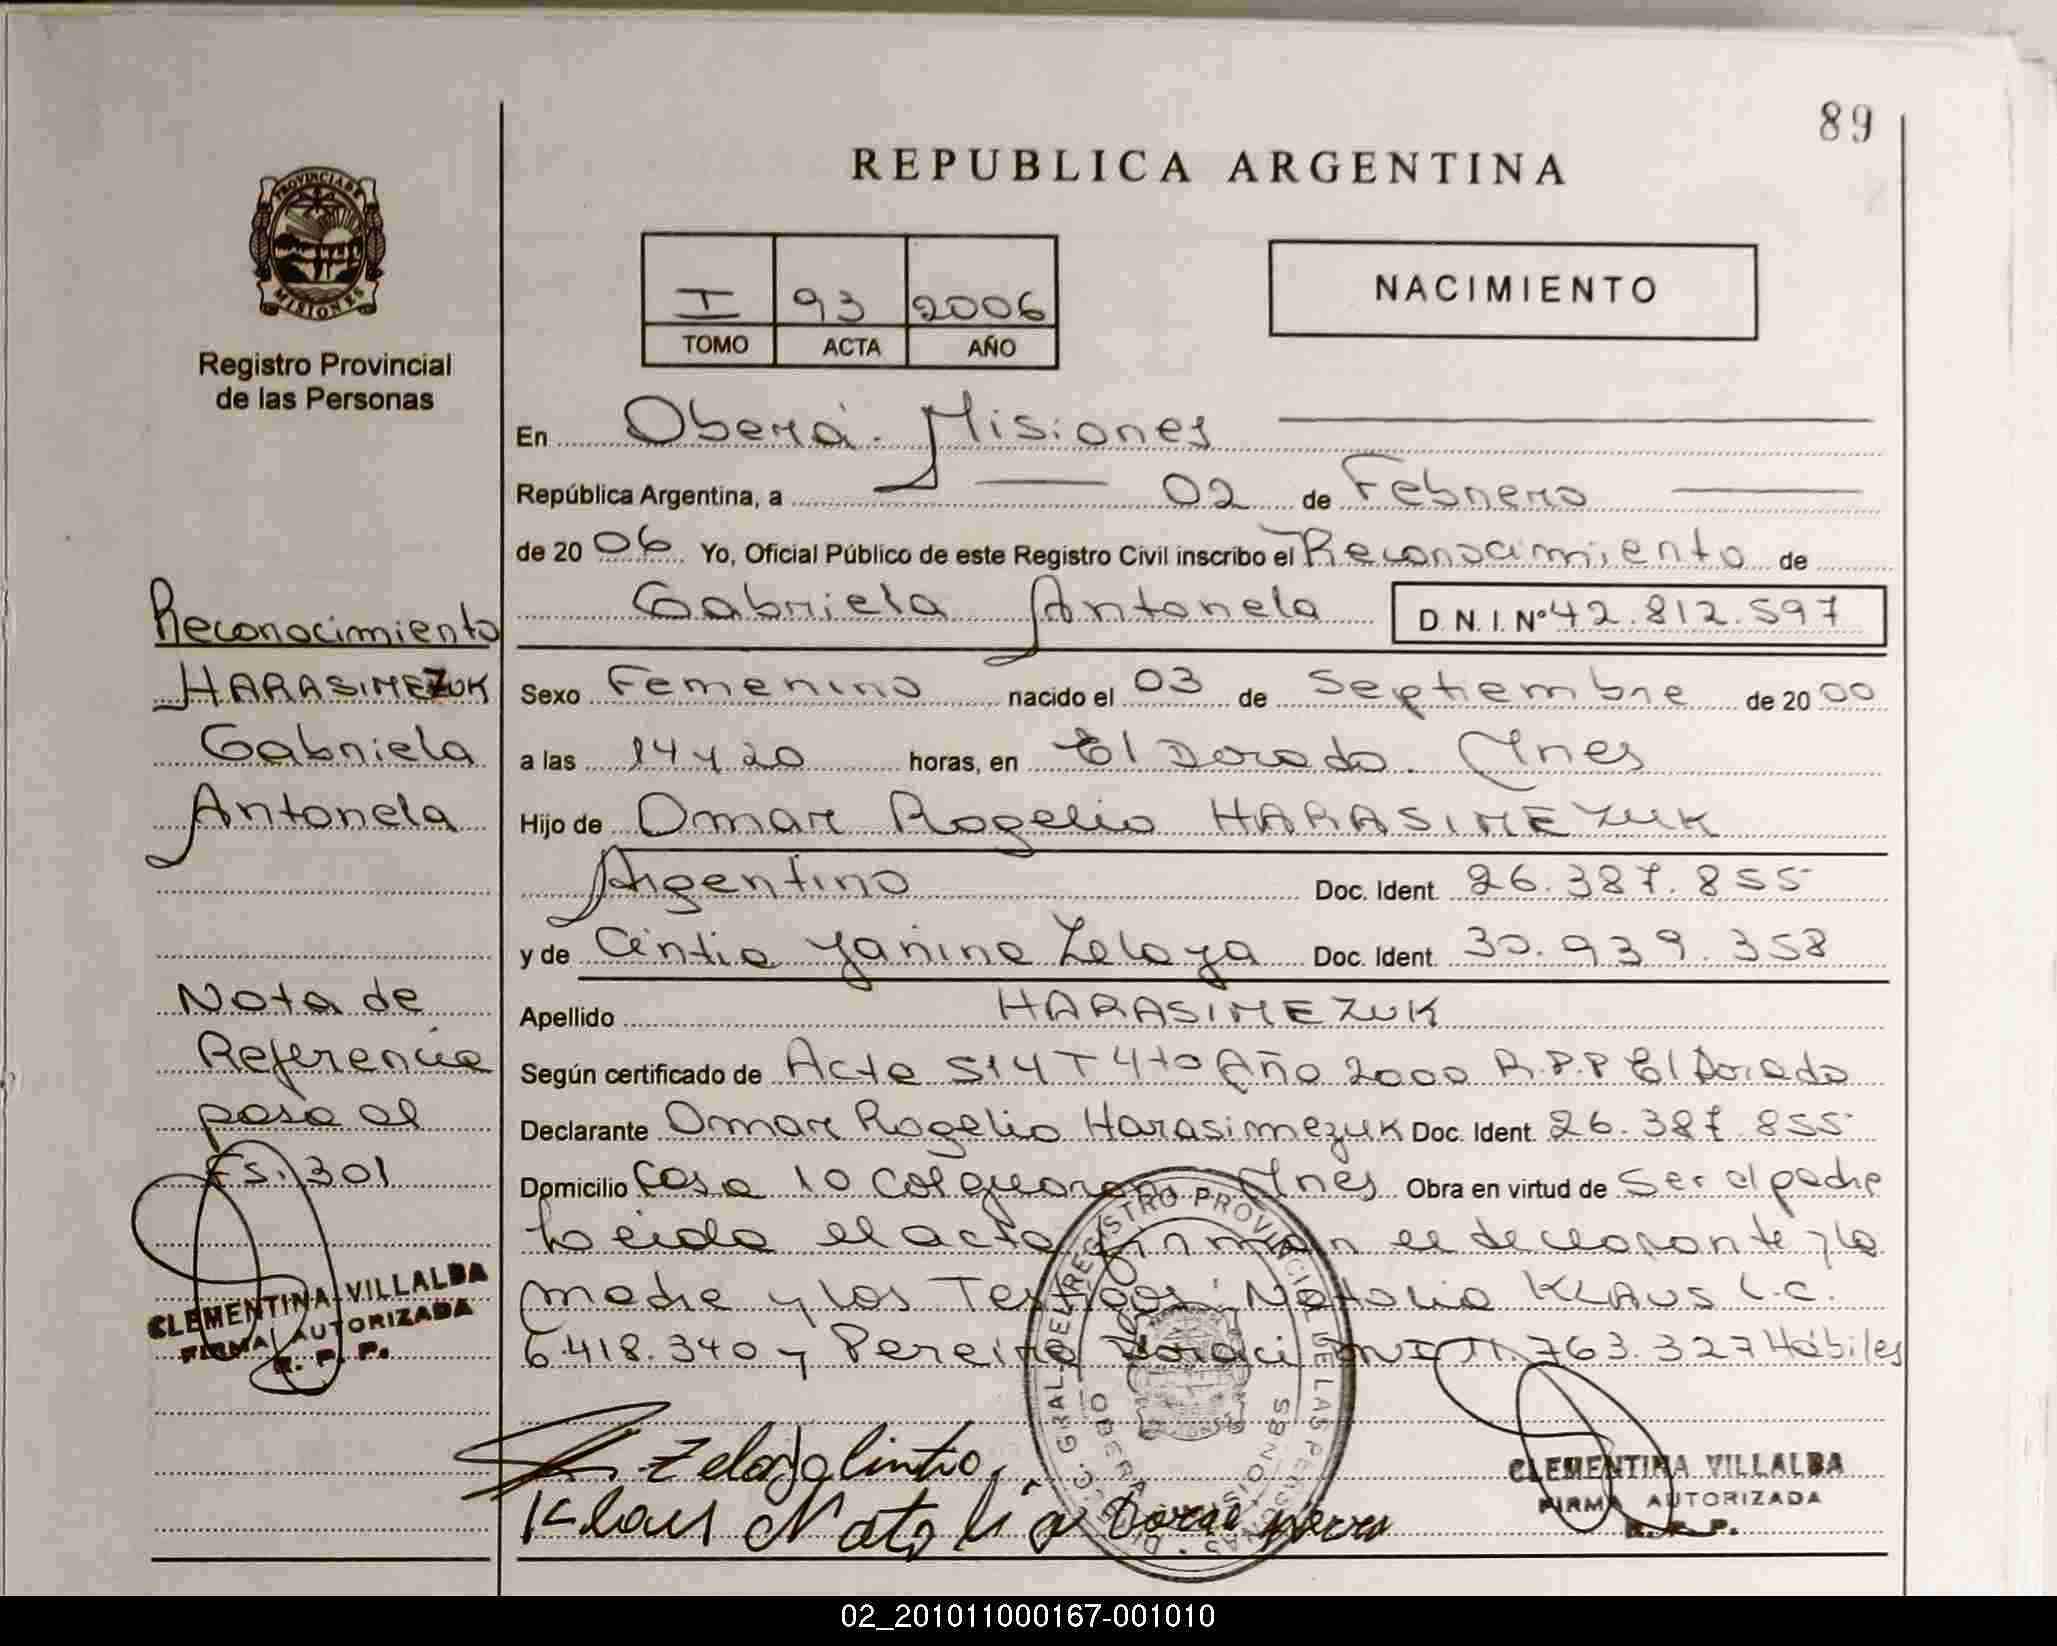 89
REPUBLICA ARGENTINA
PROVINCIA DE
MISIONES
Registro Provincial
de las Personas
I 93 2006
TOMO ACTA AÑO
NACIMIENTO
En Oberá. Misiones
República Argentina, a 02 de Febrero
de 2006 Yo, Oficial Público de este Registro Civil inscribo el Reconocimiento de
Gabriela Antonela D.N.I. Nº 42.812.597
Sexo Femenino nacido el 03 de Septiembre de 2000
a las 14 y 20 horas, en El Dorado. Mnes
Hijo de Omar Rogelio HARASIMEZUK
Argentino Doc. Ident. 26.387.855
y de Cintia Yanina Zelaya Doc. Ident. 30.939.358
Apellido HARASIMEZUK
Según certificado de Acta 514 T 4to Año 2000 R.P.P El Dorado
Declarante Omar Rogelio Harasimezuk Doc. Ident. 26.387.855
Domicilio Casa 10 Mnes Obra en virtud de Ser el padre
Leida el acta firman el declarante y la
madre y los Testigos: Natalia KLAUS L.C.
6.418.340 y Pereira MI 11.763.327 Hábiles
Reconocimiento
HARASIMEZUK
Gabriela
Antonela
Nota de
Referencia
pasa al
Fs. 301
CLEMENTINA VILLALBA
FIRMA AUTORIZADA
R. P. P.
Zelaya Cintia
Klaus Natalia
DIREC. GRAL. DEL REGISTRO PROVINCIAL DE LAS PERSONAS
OBERA MISIONES
CLEMENTINA VILLALBA
FIRMA AUTORIZADA
R. P. P.
02_201011000167-001010